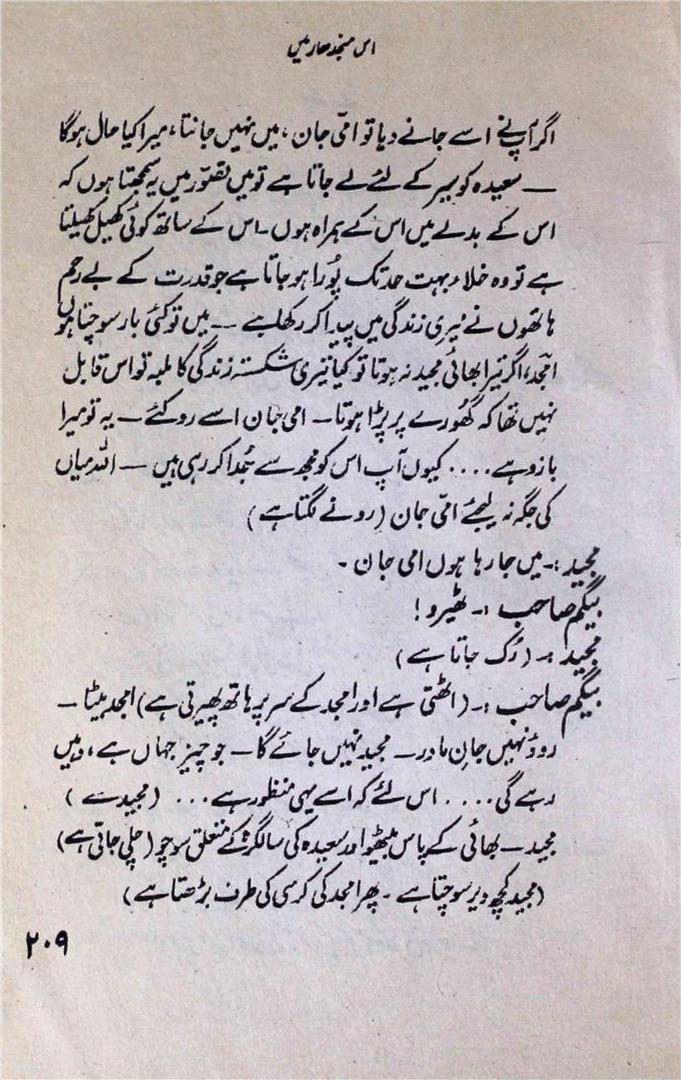 اس منجدھار میں
اگر آپ نے اسے جانے دیا تو امّی جان ، میں نہیں جانتا ، میرا کیا حال ہوگا
— سعیدہ کو سیر کے لئے لے جاتا ہے تو میں تصوّر میں یہ سمجھتا ہوں کہ
اس کے بدلے میں اس کے ہمراہ ہوں ۔ اس کے ساتھ کوئی کھیل کھیلتا
ہے تو وہ خلاء بہت حد تک پُورا ہو جاتا ہے جو قدرت کے بے رحم
ہاتھوں نے میری زندگی میں پیدا کر رکھا ہے — میں تو کئی بار سوچتا ہوں
امجد، اگر تیرا بھائی مجید نہ ہوتا تو کیا تیری شکستہ زندگی کا ملبہ تو اس قابل
نہیں تھا کہ گھُورے پر پڑا ہوتا — امی جان اسے روکئے — یہ تو میرا
بازو ہے .... کیوں آپ اس کو مجھ سے جُدا کر رہی ہیں — اللہ میاں
کی جگہ نہ لیجئے امّی جان (رونے لگتا ہے)
مجید :۔ میں جا رہا ہوں امی جان ۔
بیگم صاحب :۔ ٹھیرو !
مجید :۔ (رُک جاتا ہے)
بیگم صاحب :۔ (اٹھتی ہے اور امجد کے سر پر ہاتھ پھیرتی ہے) امجد بیٹا —
روؤ نہیں جانِ مادر — مجید نہیں جائے گا — جو چیز جہاں ہے ، وہیں
رہے گی .... اس لئے کہ اسے یہی منظور ہے ... (مجید سے)
مجید — بھائی کے پاس بیٹھو اور سعیدہ کی سالگرہ کے متعلق سوچو (چلی جاتی ہے)
(مجید کچھ دیر سوچتا ہے ۔ پھر امجد کی کرسی کی طرف بڑھتا ہے)
۲۰۹